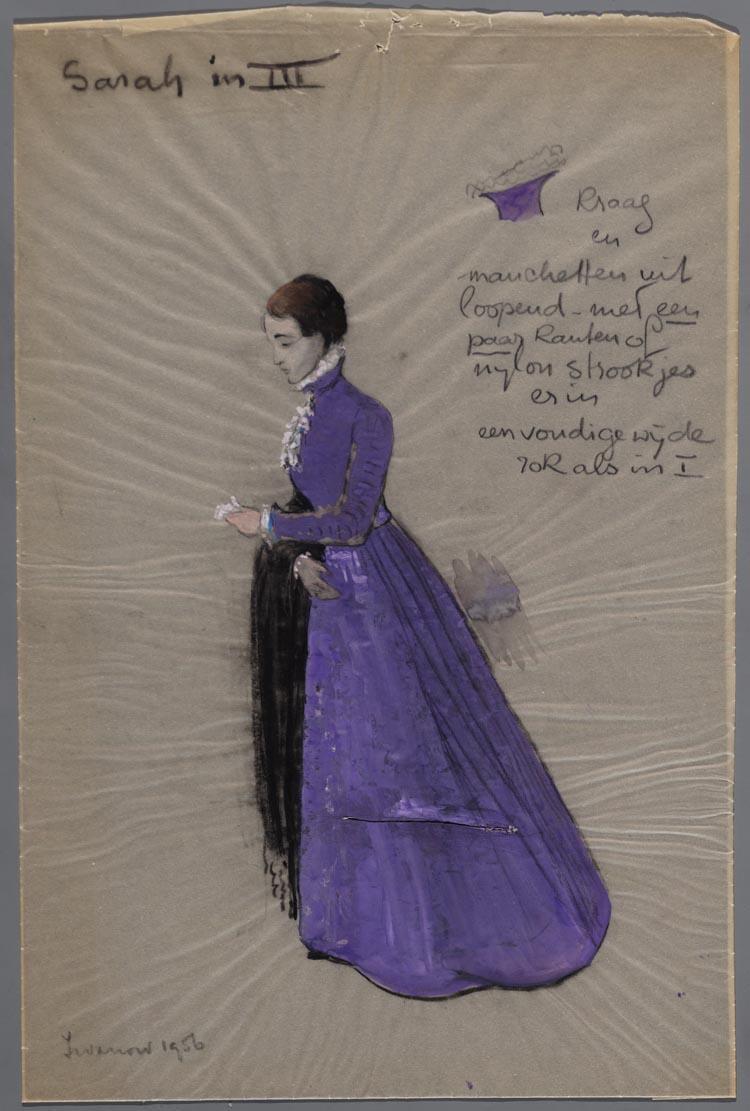 Sarah in III
Kraag
en
manchetten uit
loopend - met een
paar kanten of
nylon strookjes
er in
eenvoudige wijde
rok als in I
Iwanow 1956